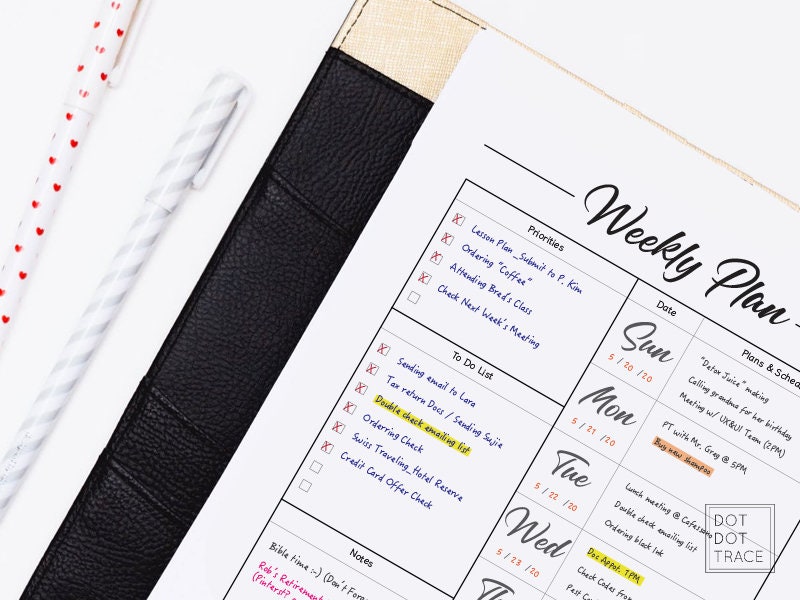 Weekly Plan
Priorities
Lesson Plan_Submit to P. Kim
Ordering "Coffee"
Attending Bred's Class
Check Next Week's Meeting
To Do List
Sending email to Lara
Tax return Docs / Sending Sujie
Double check emailing list
Orderring Check
Swiss Traveling_Hotel Reserve
Credit Card Offer Check
Notes
Bible time :-) (Don't
Rob's Retirement
(Pinterst?
Date
Plans &
Sun
5 / 20 /20
"Detox Juice" making
Calling grandma for her birthday
Meeting w/ UX&UI Team (2PM)
Mon
5 / 21 /20
PT with Mr. Greg @ 5PM
Buy new shampoo
Tue
5 / 22 /20
Lunch meeting @
Double check emailing list
Ordering black Ink
Wed
5 / 23 /20
Doc Appot. 1PM
Check Codes from
Pest
DOT
DOT
TRACE